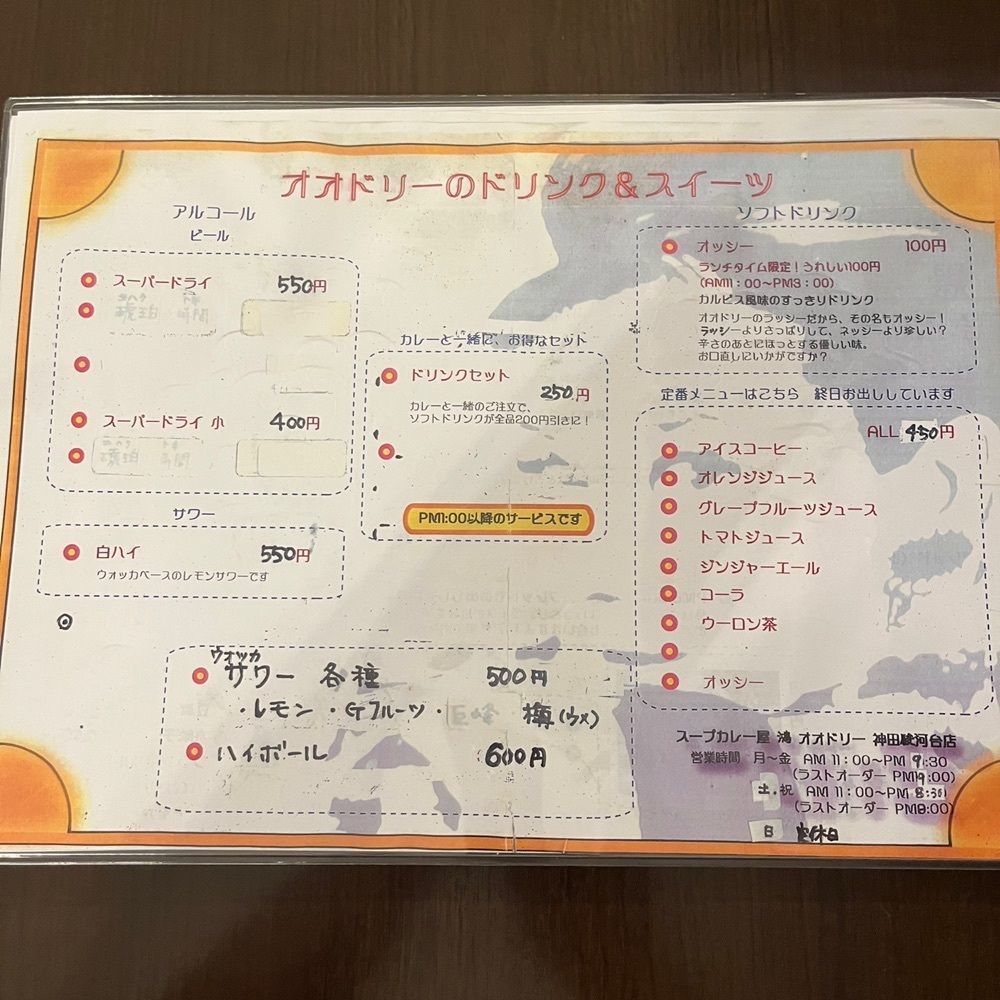 オオドリーのドリンク&スイーツ
アルコール
ビール
スーパードライ 550円
スーパードライ 小 400円
サワー
白ハイ 550円
ウォッカベースのレモンサワーです
カレーと一緒に、お得なセット
ドリンクセット
250円
カレーと一緒のご注文で、
ソフトドリンクが全品200円引きに!
PM1:00以降のサービスです
ウォッカ
サワー 各種 500円
・レモン ・Gフルーツ・ 梅(ウメ)
ハイボール 600円
ソフトドリンク
オッシー 100円
ランチタイム限定!うれしい100円
(AM11:00〜PM3:00)
カルピス風味のすっきりドリンク
オオドリーのラッシーだから、その名もオッシー!
ラッシーよりさっぱりして、ネッシーより珍しい?
辛さのあとにほっとする優しい味。
お口直しにいかがですか?
定番メニューはこちら 終日お出ししています
ALL 450円
アイスコーヒー
オレンジジュース
グレープフルーツジュース
トマトジュース
ジンジャーエール
コーラ
ウーロン茶
オッシー
スープカレー屋 鴻 オオドリー 神田駿河台店
営業時間 月〜金 AM 11:00〜PM 9:30
(ラストオーダー PM9:00)
土.祝 AM 11:00〜PM 8:30
(ラストオーダー PM8:00)
日 定休日